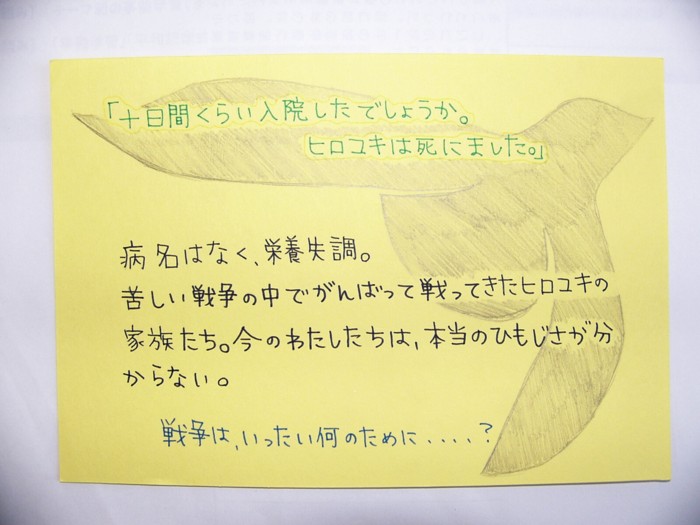 「十日間くらい入院したでしょうか。
ヒロユキは死にました。」
病名はなく、栄養失調。
苦しい戦争の中でがんばって戦ってきたヒロユキの
家族たち。今のわたしたちは、本当のひもじさが分
からない。
戦争は、いったい何のために・・・・?